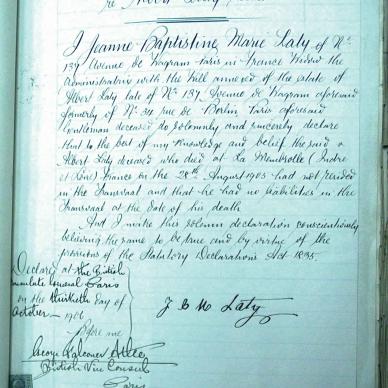 re Albert Laty
I Jeanne Baptistine Marie Laty of No
137 Avenue de Wagram Paris in France Widow the
Administratrix with the Will annexed of the estate of
Albert Laty late of No 137 Avenue de Wagram aforesaid
formerly of No 34 rue de Berlin Paris aforesaid
Gentleman deceased do solemnly and sincerely declare
that to the best of my knowledge and belief the said
Albert Laty deceased who died at La Membrolle (Indre
et Loire) France on the 28th August 1905 had not resided
in the Transvaal and that he had no liabilities in the
Transvaal at the date of his death
And I make this solemn declaration conscientiously
believing the same to be true and by virtue of the
provisions of the Statutory Declarations Act 1835.
Declared at the British
Consulate General Paris
on the thirtieth day of
October 1906
J B M Laty
Before me
George Falconer Atlee
British Vice Consul
Paris